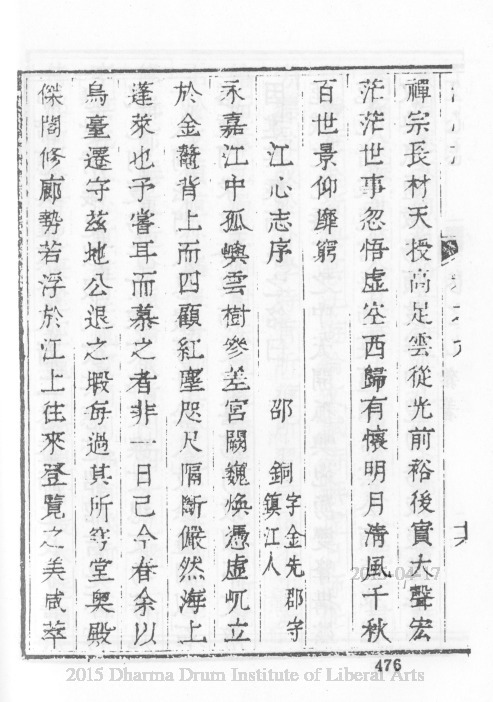 禪宗長材天授高足雲從光前裕後實大聲宏
茫茫世事忽悟虛空西歸有懷明月清風千秋
百世景仰靡窮
江心志序 邵銅字金先郡守鎮江人
永嘉江中孤嶼雲樹參差宮闕魏煥憑虛屹立
於金鰲背上而四顧紅塵咫尺隔斷儼然海上
蓬萊也予嘗耳而慕之者非一日己今春余以
烏臺遷守茲地公退之暇每過其所穹堂奧殿
傑閣修廊勢若浮於江上往來登覽之美咸萃
476
2015 Dharma Drum Institute of Liberal Arts